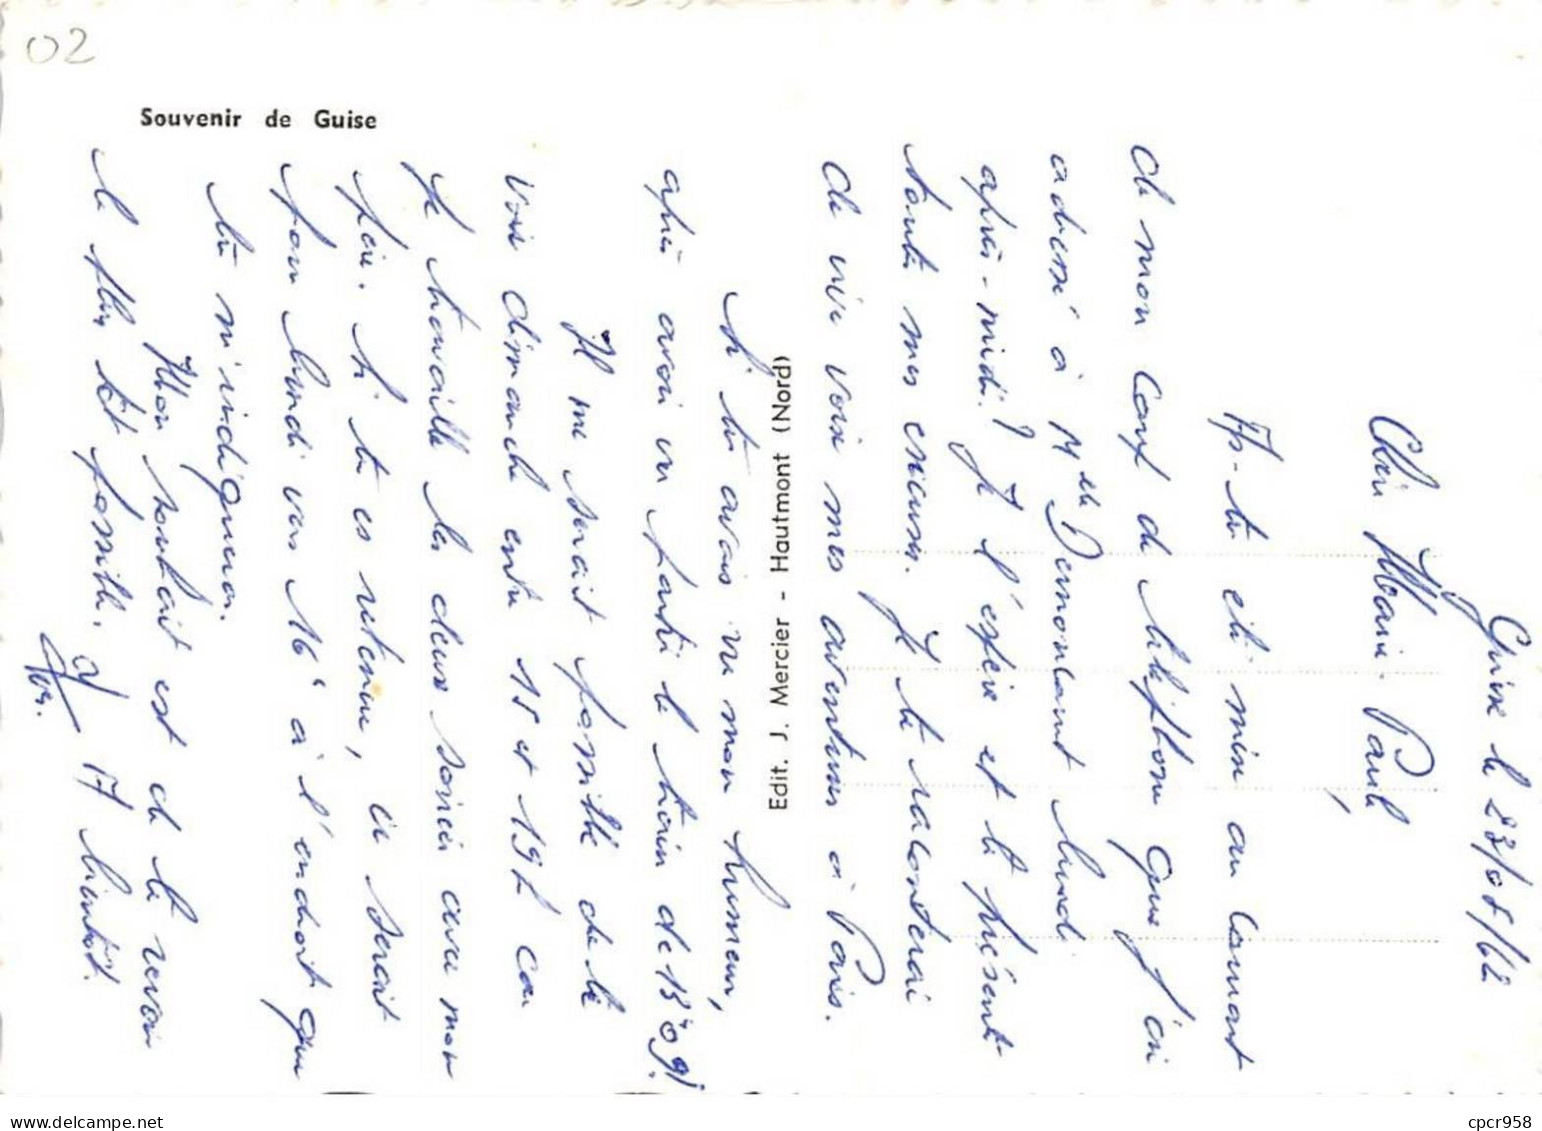 02
Souvenir de Guise
Edit. J. Mercier - Hautmont (Nord)
Guise le 23/08/62
Chère Marie Paule,
As-tu été mise au courant
de mon coup de téléphone que j'ai
adressé à Mlle Demoulant lundi
après-midi ? Je l'espère et te présente
toutes mes excuses. Je te raconterai
de vive voix mes aventures à Paris.
Si tu avais vu mon humeur,
après avoir vu partir le train de 13h09!
Il me serait possible de te
voir dimanche entre 18 et 19h car
je travaille les deux soirées avec mon
père. Si tu es retenue, ce serait
pour lundi vers 16h à l'endroit que
tu m'indiqueras.
Mon souhait est de te revoir
le plus tôt possible. A bientôt.
Yves.
cpcr958